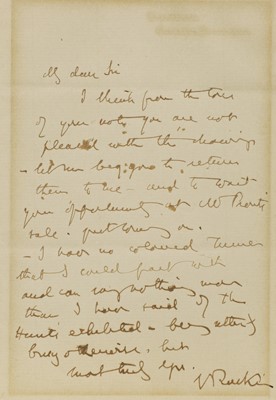 My dear Sir
I think from the tone
of your note you are not
pleased with the drawings
- let me beg you to return
them to me - and to wait
your opportunity at Mr Prouts
sale. just coming on.
- I have no coloured Turner
that I could part with
and can say nothing more
than I have said of the
Hunts exhibited - being utterly
busy otherwise, but
most truly yrs.
J Ruskin